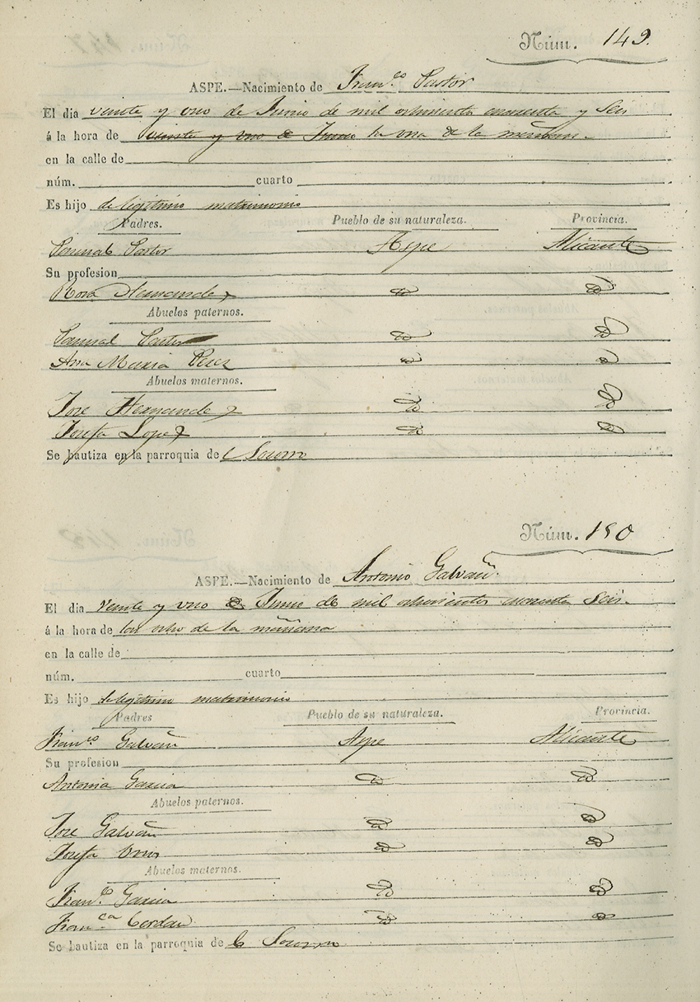 Núm. 149.
ASPE.—Nacimiento de Fran.co Pastor
El dia veinte y uno de Junio de mil ochocientos cincuenta y Seis
á la hora de veinte y uno de Junio la una de la mañana.
en la calle de
núm. cuarto
Es hijo de legitimo matrimonio
Padres. Pueblo de su naturaleza. Provincia.
Pastor Aspe Alicante
Su profesion
Rosa Hernandez
Abuelos paternos.
Pastor
Ana Maria Perez
Abuelos maternos.
Jose Hernandez
Josefa Lopez
Se bautiza en la parroquia de
Núm. 150
ASPE.—Nacimiento de Antonio Galvañ.
El dia veinte y uno de Junio de mil ochocientos cincuenta Seis.
á la hora de las ocho de la mañana
en la calle de
núm. cuarto
Es hijo de legitimo matrimonio
Padres Pueblo de su naturaleza. Provincia.
Fran.co Galvañ Aspe Alicante
Su profesion
Antonia Garcia
Abuelos paternos.
Jose Galvañ
Josefa
Abuelos maternos.
Fran.co Garcia
Fran.ca
Se bautiza en la parroquia de